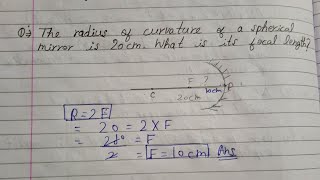 Q:⇒ The radius of curvature of a spherical
mirror is 20cm. What is its focal length?
F
10cm
P
C
20cm
R=2F
= 20 = 2×F
= F
= F=10cm Ans